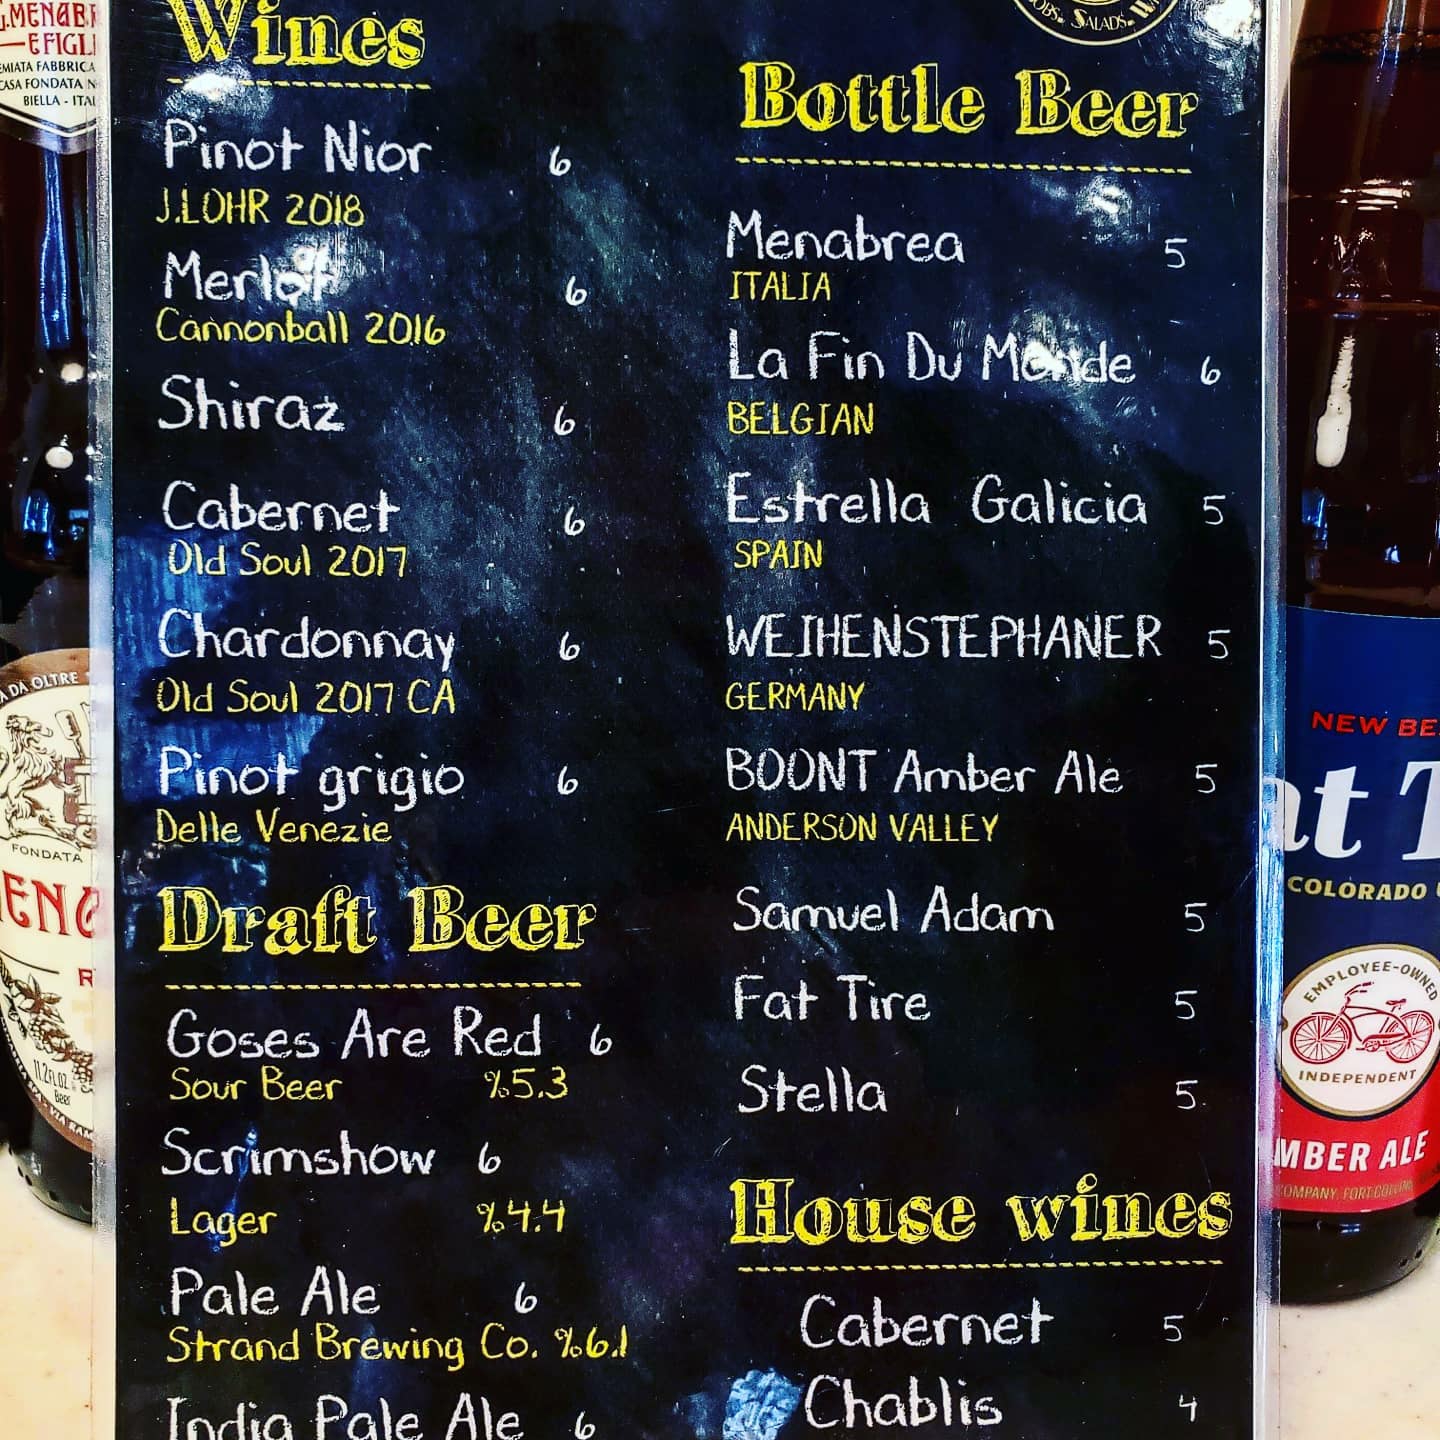 Wines
Pinot Nior 6
J.LOHR 2018
Merlot 6
Cannonball 2016
Shiraz 6
Cabernet 6
Old Soul 2017
Chardonnay 6
Old Soul 2017 CA
Pinot grigio 6
Delle Venezie
Draft Beer
Goses Are Red 6
Sour Beer %5.3
Scrimshow 6
Lager %4.4
Pale Ale 6
Strand Brewing Co. %6.1
India Pale Ale 6
SALADS
Bottle Beer
Menabrea 5
ITALIA
La Fin Du Monde 6
BELGIAN
Estrella Galicia 5
SPAIN
WEIHENSTEPHANER 5
GERMANY
BOONT Amber Ale 5
ANDERSON VALLEY
Samuel Adam 5
Fat Tire 5
Stella 5
House wines
Cabernet 5
Chablis 4
E FIGLI
CASA FONDATA
BIELLA - ITAL
DA OLTRE
FONDATA
11.2 FL OZ
Beer
NEW BE
at T
COLORADO
EMPLOYEE-OWNED
INDEPENDENT
MBER ALE
COMPANY, FORT